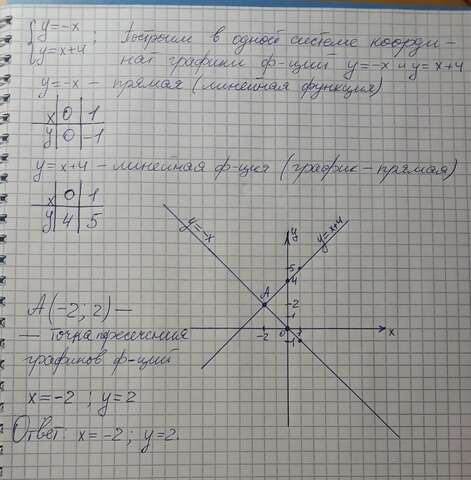 {y=-x
{y=x+4 ; Построим в одной системе коорди-
нат графики ф-ций y=-x и y=x+4
y=-x - прямая (линейная функция)
x|0|1
y|0|-1
y=x+4 - линейная ф-ция (график-прямая)
x|0|1
y|4|5
y=-x
y
y=x+4
5
4
A
2
1
-2
0
1
x
-1
A(-2; 2) -
- точка пресечения
графиков ф-ций
x=-2 ; y=2
Ответ: x=-2; y=2.